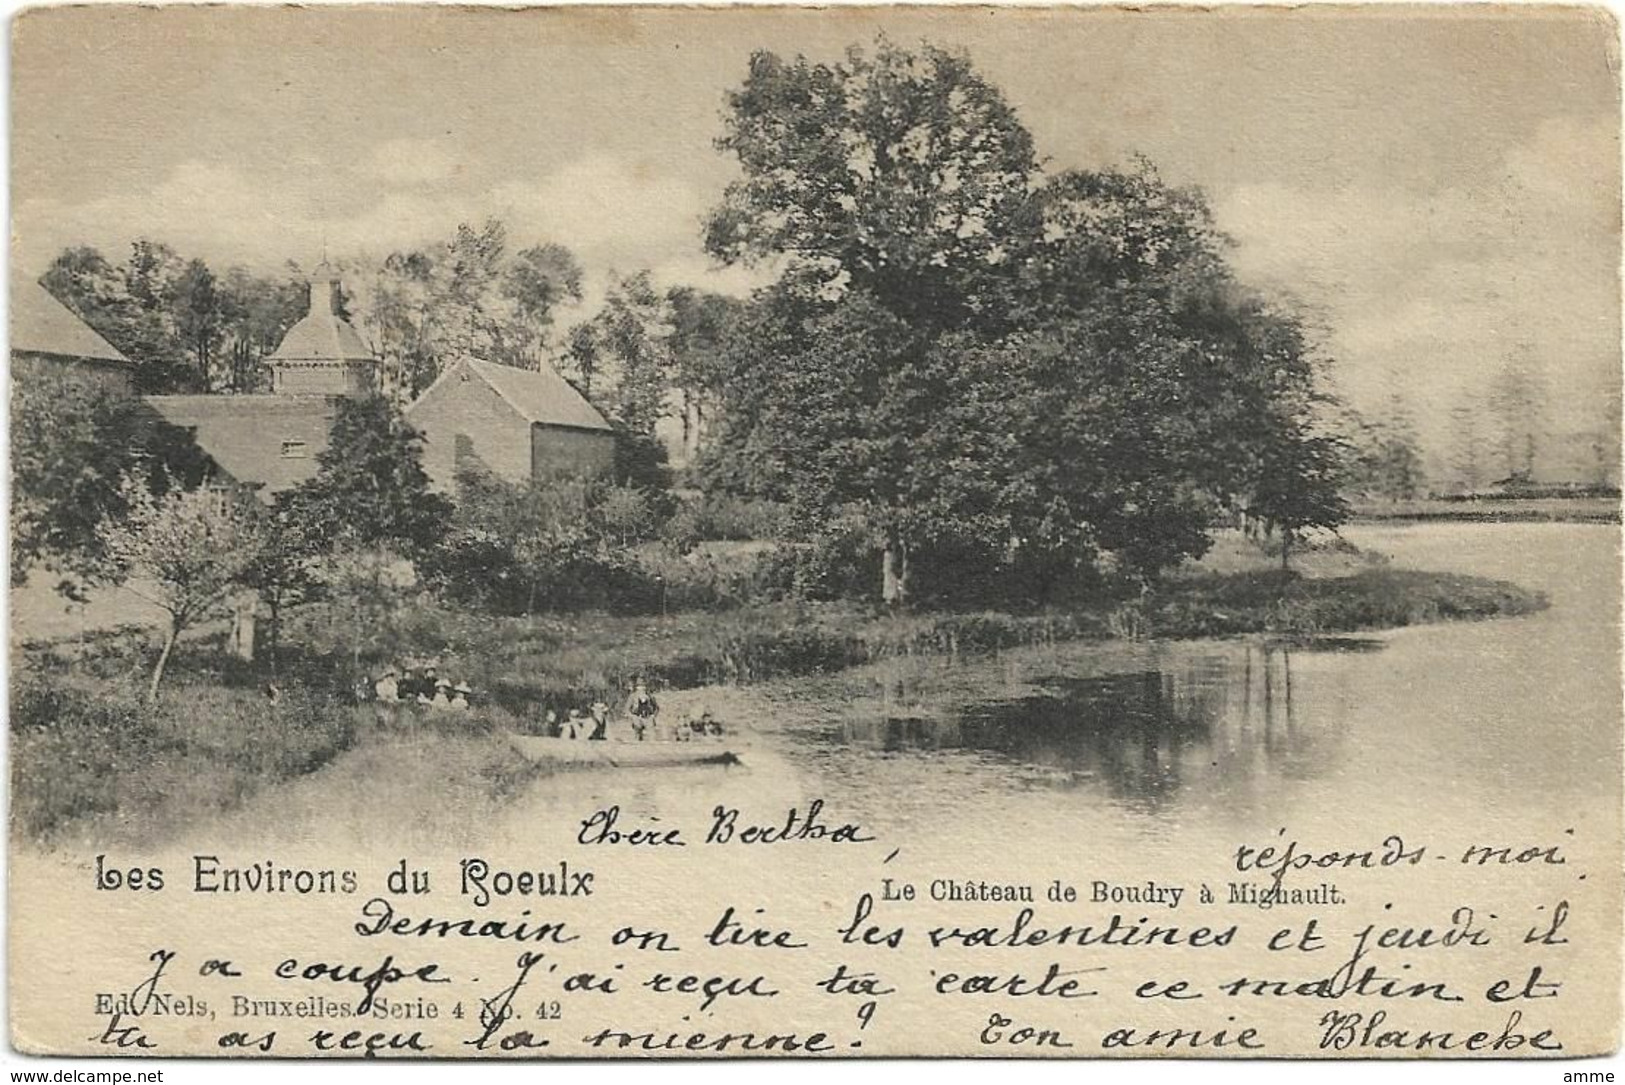 Chère Bertha,
réponds-moi
Les Environs du Rœulx
Le Château de Boudry à Mignault.
Demain on tire les valentines et jeudi il
y a coupe. J'ai reçu ta carte ce matin et
Ed. Nels, Bruxelles. Serie 4 No. 42
tu as reçu la mienne? Ton amie Blanche
www.delcampe.net
amme